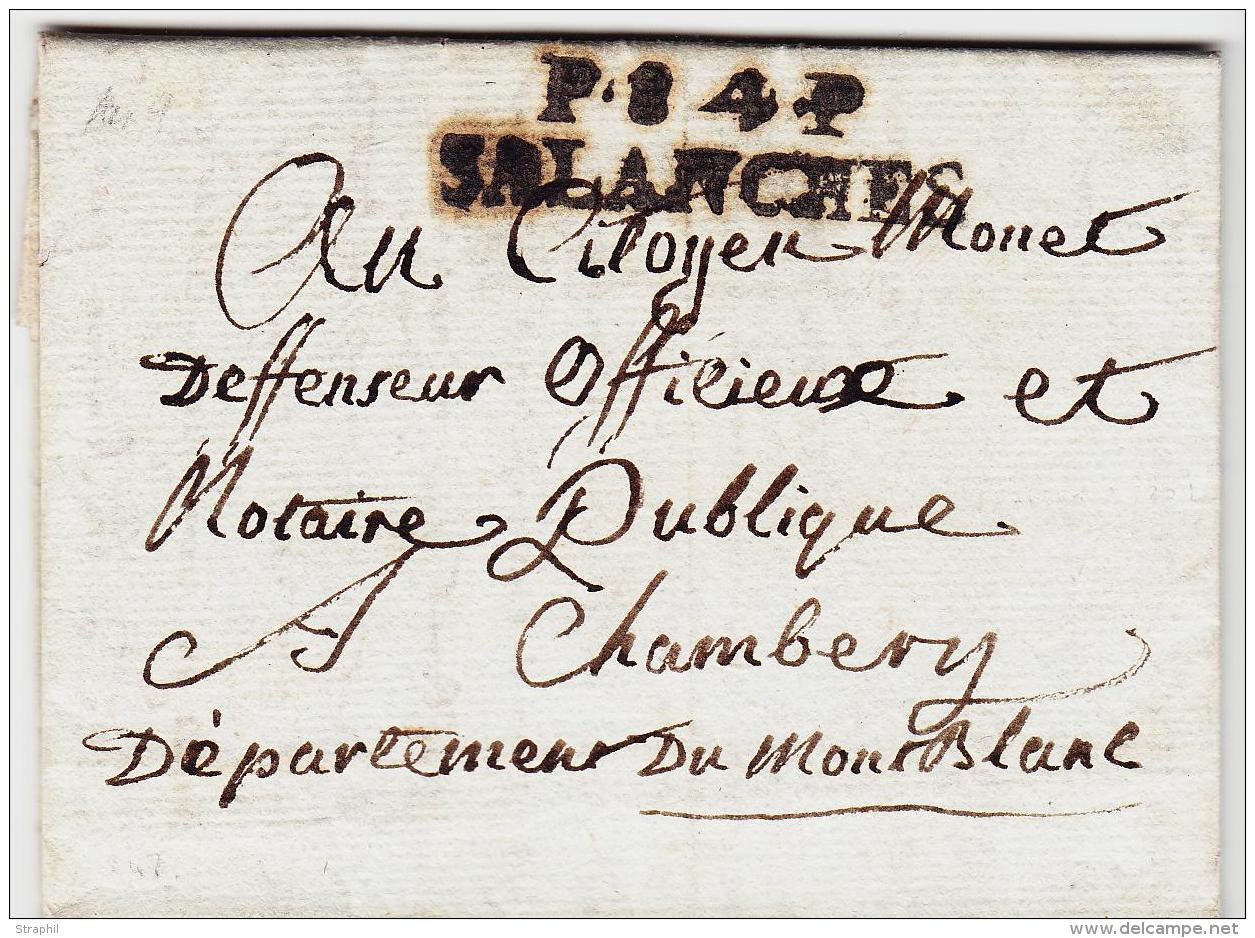 P.84.P
SALANCHES
Au Citoyen Monet
Deffenseur Officieux et
Notaire Publique
A Chambery
Département du MontBlanc
Straphil
delcampe.net